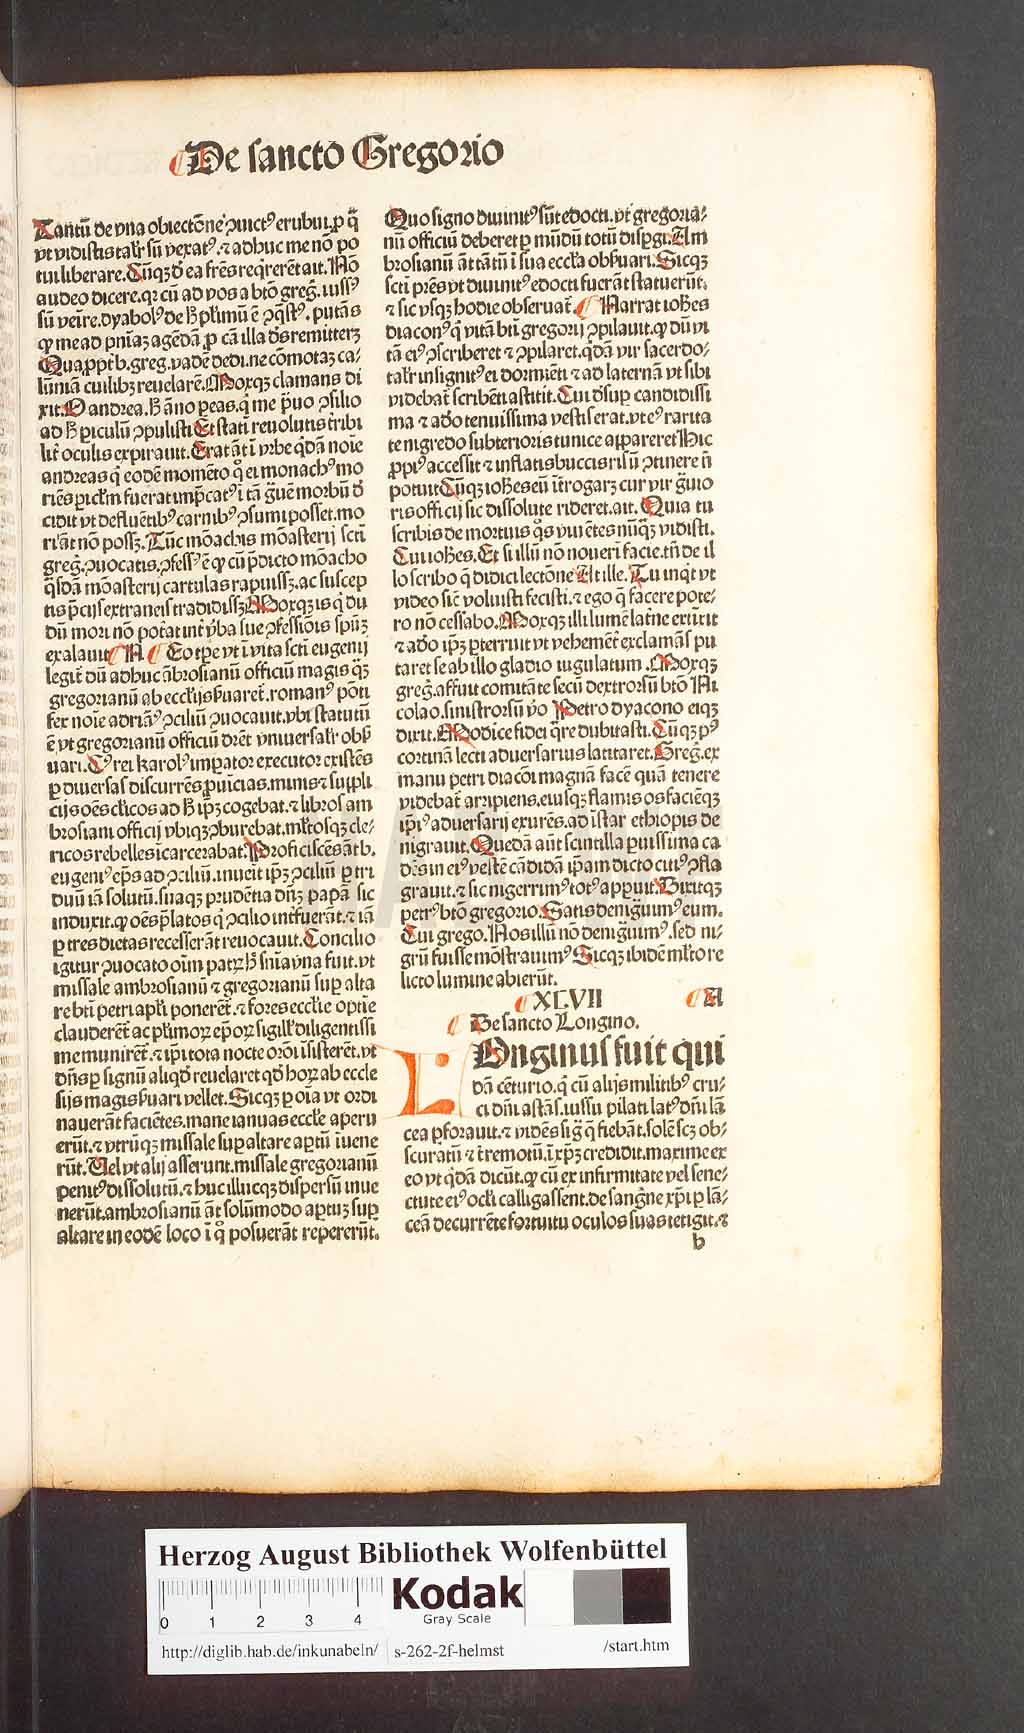 De sancto Gregorio
Tantū de vna obiectōne ꝯuictꝰ erubui. ꝑ qͥ̄
vt vidistis talr̄ sū vexatꝰ. ⁊ adhuc me nō po
tui liberare. Cūqꝫ d̓ ea frēs reqͥrerēt ait. Nō
audeo dicere. qꝛ cū ad vos a btō greg̃. iussꝰ
sū veīre. dyabolꝰ de ꝯq̄stꝰ. putās
ꝙ me ad pnīaꝫ agēdā ꝓ cā illa dn̄s remitterꝫ
Qua ꝓpt̄ b. greg. vadē dedi. ne cōmotaꝫ ca⸗
lūniā cuilibꝫ reuelarē. Moxqꝫ clamans di
xit. O andrea. hͦ āno ꝑeas. qͥ me prauo ꝯsilio
ad hͦ ꝑiculū ꝯpulisti Et stati reuolutis tr̄ibi
lit̄ oculis expirauit. Erat āt ī vrbe qͥdā noīe
andreas qͥ eodē momēto qͦ ei monachꝰ mo
riēs
cidit vt defluētibꝰ carnibꝰ ꝯsumi posset. mo
ri āt nō possꝫ. Tūc mōachis mōasterij scti
greg̃. ꝯuocatis. ꝯfessꝰ ē ꝙ cū p̄dicto mōacho
qͣsdā mōasterij cartulas rapuissꝫ. ac suscep
tis p̄cijs extraneis tradidissꝫ Moxqꝫ is qͥ du
dū mori nō pot̄at int̄ v̓ba sue ꝯfessiōis spūꝫ
exalauit N Eo tꝑe vt ī vita scti eugenij
legit̄ dū adhuc ābrosianū officiū magis qͣꝫ
gregorianū ab ecclijs s̓uaret̄. romanꝰ pōti
fex noīe adriāꝰ ꝯciliū ꝯuocauit. vbi statutū
ē vt gregorianū officiū dr̄et vniuersalr̄ obs̓
uari. Cꝰ rei karolꝰ imꝑator executor existēs
ꝑ diuersas discurrēs ꝓuīcias. minis ⁊ suppli
cijs oēs clīcos ad hͦ ip̄ꝫ cogebat. ⁊ libros am
brosiani officij vbiqꝫ ꝯburebat. ml̄tosqꝫ cle⸗
ricos rebelles īcarcerabat. Proficiscēs āt b.
eugeniꝰ ep̄s ad ꝯciliū. inueīt ip̄ꝫ ꝯciliū ꝑ tri
duū iā solutū. suaqꝫ prudētia dn̄ꝫ papā sic
induxit. ꝙ oēs p̄latos qͥ ꝯcilio int̄fuerāt. ⁊ iā
ꝑ tres dietas recesserāt reuocauit. Concilio
igitur ꝯuocato oīm patꝝ hͨ sn̄ia vna fuit. vt
missale ambrosianū ⁊ gregorianū suꝑ alta
re bti petri apl̄i ponerēt̄. ⁊ fores ecclīe optīe
clauderēt̄ ac pl̄imoꝝ ep̄oꝝ sigill̄ diligentissi
me munirēt̄. ⁊ ip̄i tota nocte orōi īsisterēt. vt
dn̄s ꝑ signū aliqd̓ reuelaret qd̓ hoꝝ ab eccle
sijs magis s̓uari vellet. Sicqꝫ ꝑ oīa vt ordi
nauerāt faciētes. mane ianuas ecclīe aperu
erūt. ⁊ vtrūqꝫ missale suꝑ altare aꝑtū īuene
rūt. Uel vt alij asserunt. missale gregorianū
penitꝰ dissolutū. ⁊ huc illucqꝫ dispersū inue
nerūt. ambrosianū āt solūmodo aꝑtuꝫ suꝑ
altare in eodē loco ī qͦ posuerāt repererūt.
Quo signo diuinitꝰ sūt edocti. vt gregoria⸗
nū officiū deberet ꝑ mūdū totū disꝑgi. Am
brosianū āt tātū ī sua eccl̄ia obs̓uari. Sicqꝫ
scti prēs vt diuinitꝰ edocti fuerāt statuerūt.
⁊ sic vsqꝫ hodie obseruat̄. Narrat iohēs
diaconꝰ qͥ vitā bti gregorij ꝯpilauit. ꝙ dū vi
tā eiꝰ ꝯscriberet ⁊ ꝯpilaret. qͥdā vir sacerdo⸗
talr̄ insignitꝰ ei dormiēti ⁊ ad laternā vt sibi
videbat̄ scribēti astitit. Cui d̓suꝑ candidissi
ma ⁊ adeo tenuissima vestis erat. vt eꝰ rarita
te nigredo subterioris tunice appareret Hic
ꝓpiꝰ accessit ⁊ inflatis buccis risū ꝯtinere nō
potuit Cūqꝫ iohēs eū īt̄rogarꝫ cur vir g̃uio
ris officij sic dissolute rideret. ait. Quia tu
scribis de mortuis qͦs viuētes nūqͣꝫ vidisti.
Cui iohēs. Et si illū nō nouerī facie. tn̄ de il
lo scribo q̄ didici lectōne At ille. Tu inqͥt vt
video sic̄ voluisti fecisti. ⁊ ego qͥ facere pote⸗
ro nō cessabo. Moxqꝫ illi lumē lat̄ne extixit
⁊ adeo ip̄ꝫ ꝑterruit vt vehemēt̄ exclamās pu
taret se ab illo gladio iugulatum. Moxqꝫ
greg̃. affuit comitāte secū dextrorsū btō Ni
colao. sinistrorsū v̓o Petro dyacono eiqꝫ
dixit. Modice fidei qͣre dubitasti. Cūqꝫ pꝰ
cortinā lecti aduersarius latitaret. Greg̃. ex
manu petri diacōi magnā facē quā tenere
videbat̄ arripiens. eiusqꝫ flamis os faciēqꝫ
ip̄iꝰ aduersarij exurēs. ad īstar ethiopis de
nigrauit. Quedā aūt scintilla ꝑuissima ca
dēs in eiꝰ vestē cādidā ip̄am dicto citiꝰ ꝯfla
grauit. ⁊ sic nigerrimꝰ totꝰ apꝑuit. Dixitqꝫ
petrꝰ btō gregorio. Satis denig̃uimꝰ eum.
Cui grego. Nos illū nō denig̃uimꝰ. sed ni⸗
grū fuisse mōstrauimꝰ Sicqꝫ ibidē ml̄to re
licto lumine abierūt.
XLVII A
De sancto Longino.
LOnginus fuit qui
dā cēturio. qͥ cū alijs militibꝰ cru⸗
ci dn̄i astās. iussu pilati latꝰ dn̄i lā
cea ꝑforauit. ⁊ vidēs sig̃ q̄ fiebāt. solē scꝫ ob⸗
scuratū ⁊ t̄remotū. ī xp̄ꝫ credidit. maxime ex
eo vt qͥdā dicūt. ꝙ cū ex infirmitate vel sene⸗
ctute eiꝰ ocl̄i calligassent. de sangͥne xp̄i ꝑ lā⸗
ceā decurrēte fortuitu oculos suos tetigit. ⁊
b
Herzog August Bibliothek Wolfenbüttel
Kodak
Gray Scale
0 1 2 3 4
http://diglib.hab.de/inkunabeln/ s-262-2f-helmst /start.htm